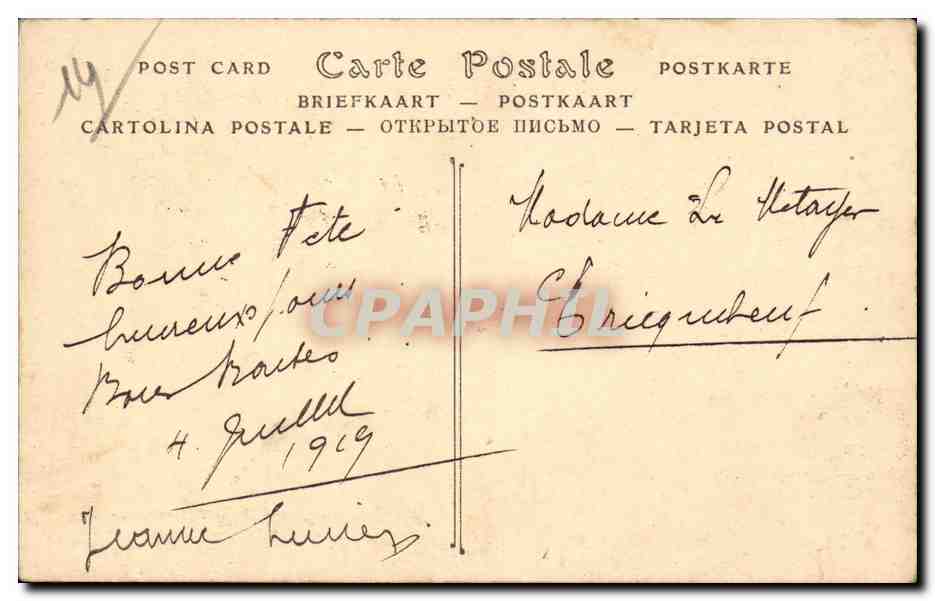 14
POST CARD Carte Postale POSTKARTE
BRIEFKAART — POSTKAART
CARTOLINA POSTALE — ОТКРЫТОЕ ПИСЬМО — TARJETA POSTAL
Bonne Fete
heureux jour
Bons Baisers
4. Juillet
1919
Jeanne
Madame Le Metayer
Tricquebeuf
CPAPHIL